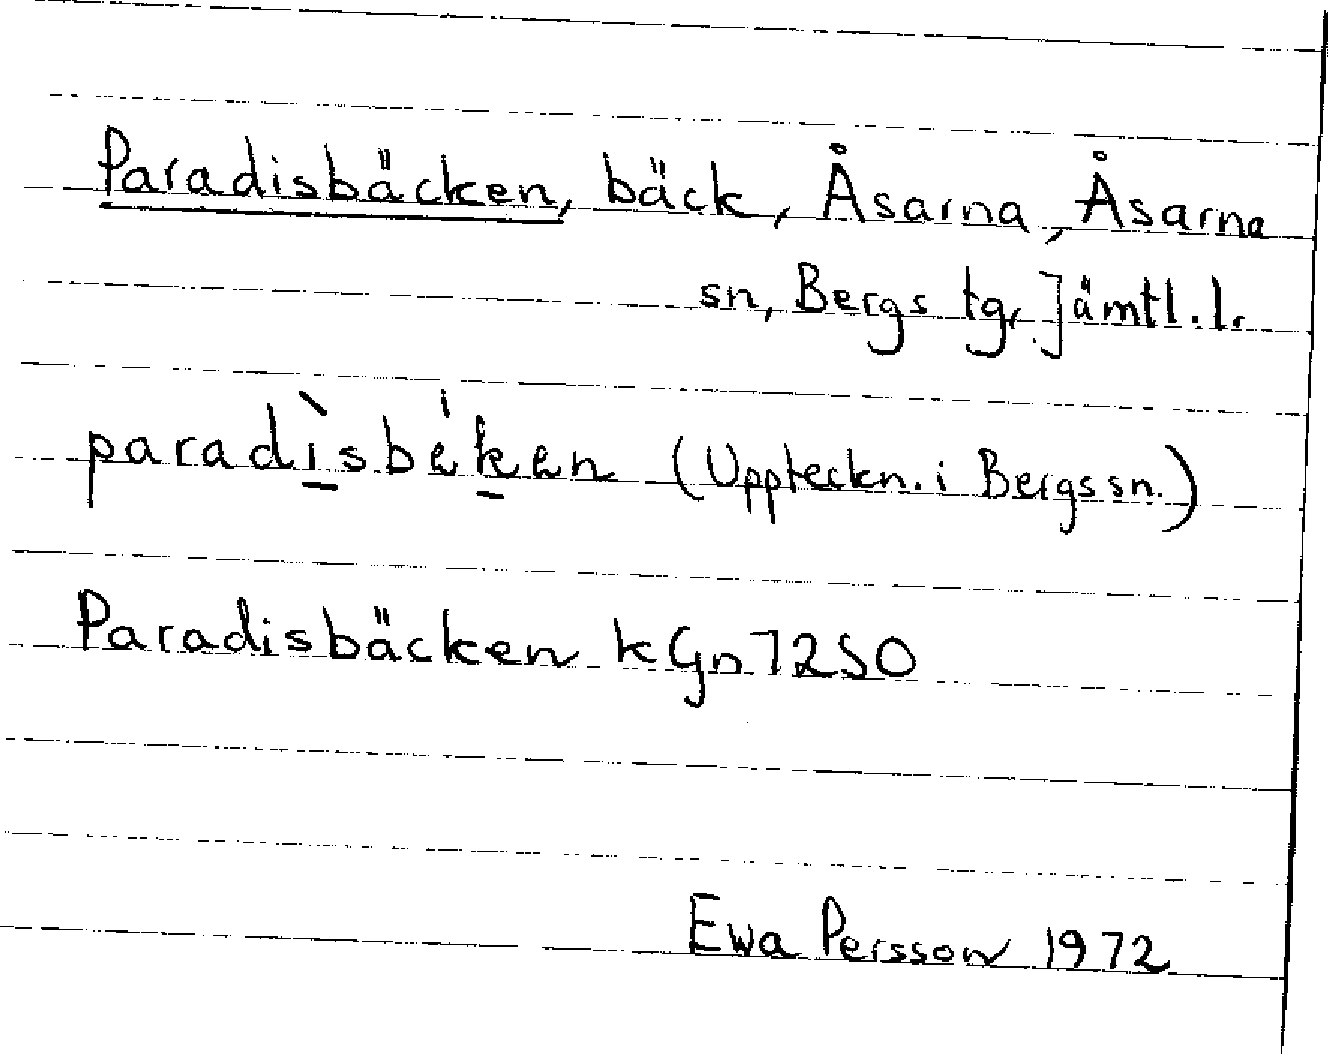 Paradisbäcken, bäck, Åsarna, Åsarne
sn, Bergs tg, Jämtl.l.
paradìsbéken (Uppteckn. i Bergs sn.)
Paradisbäcken kGn 7250
Ewa Persson 1972